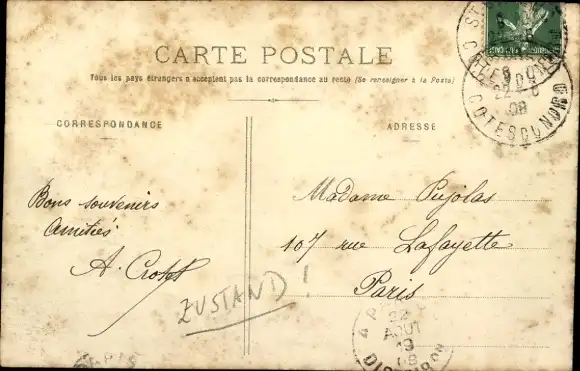 CARTE POSTALE
Tous les pays étrangers n'acceptent pas la correspondance au recto (Se renseigner à la Poste)
CORRESPONDANCE
ADRESSE
Bons souvenirs
Amitiés
ZUSTAND!
Madame Pujolas
107 rue Lafayette
Paris
22
08
COTES DU NORD
PARIS
22
AOUT
19
08